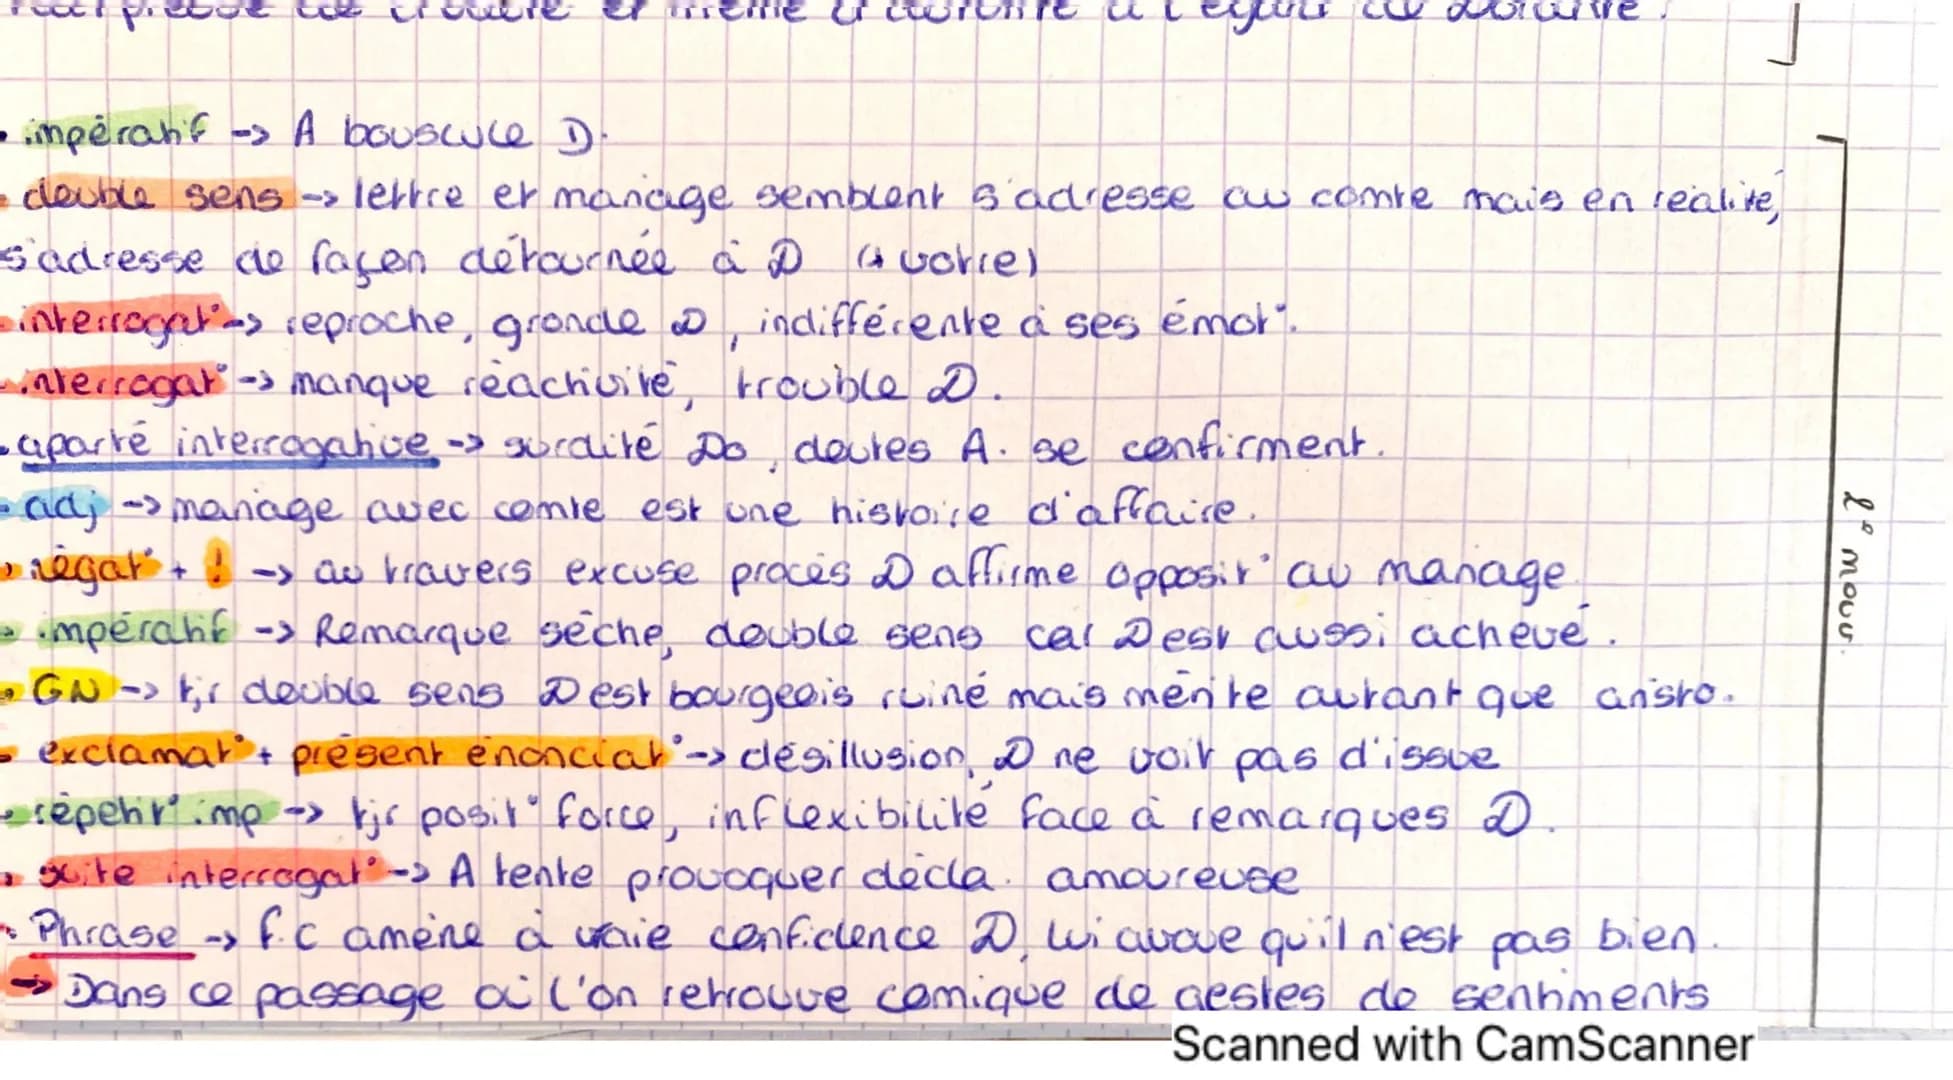 et même d'ironie à l'égard de Dorante.
• impératif -> A bouscule D.
• double sens -> lettre et mariage semblent s'adresse au comte mais en réalité,
s'adresse de façon détournée à D (votre)
• interrogat° -> reproche, gronde D, indifférente à ses émot°.
• interrogat° -> manque réactivité, trouble D.
• aparté interrogative -> surdité Do, doutes A. se confirment.
• adj -> mariage avec comte est une histoire d'affaire.
• négat° + ! -> au travers excuse procès D affirme opposit° au mariage
• impératif -> Remarque sèche, double sens car D est aussi achevé.
• GN -> tjr double sens D est bourgeois ruiné mais mérite autant que aristo.
• exclamat° + présent énonciat° -> désillusion, D ne voit pas d'issue
• répétit° imp -> tjr posit° force, inflexibilité face à remarques D.
• suite interrogat° -> A tente provoquer décla. amoureuse
• Phrase -> f.c amène à vraie confidence D, lui avoue qu'il n'est pas bien.
-> Dans ce passage où l'on retrouve comique de gestes de sentiments
l° mouv.
Scanned with CamScanner